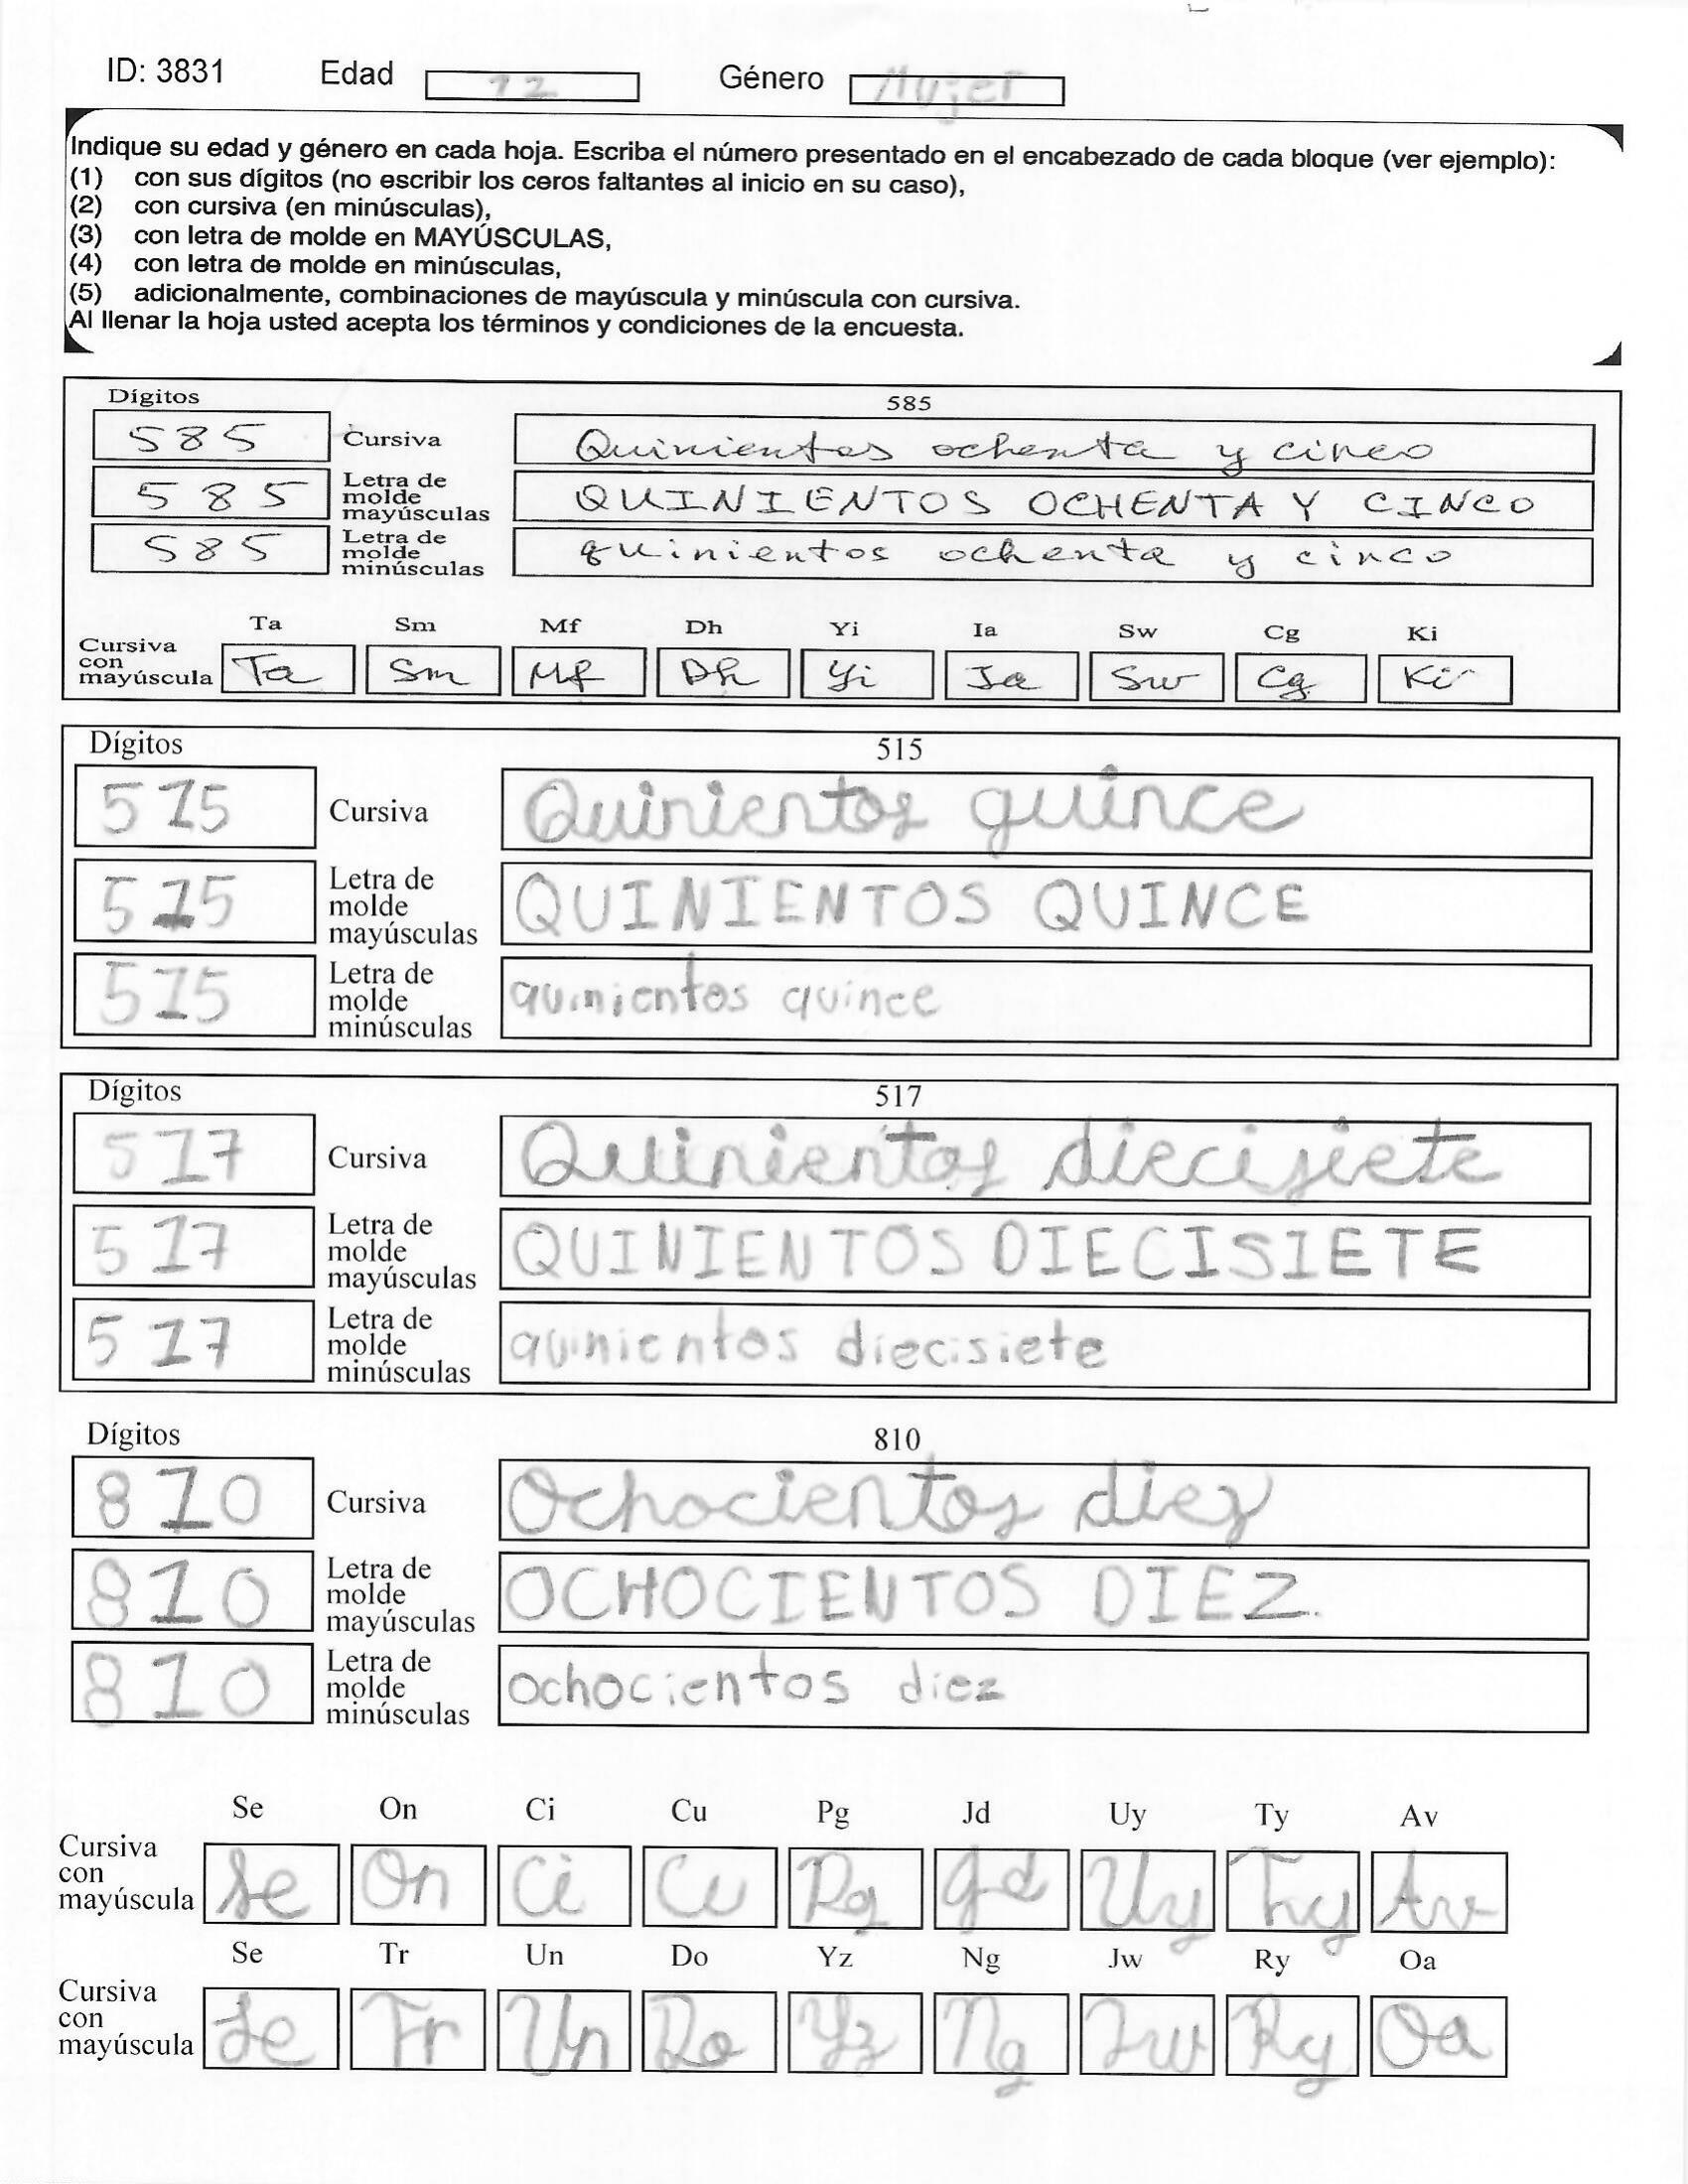 ID: 3831 Edad 12 Género Mujer
Indique su edad y género en cada hoja. Escriba el número presentado en el encabezado de cada bloque (ver ejemplo):
(1) con sus dígitos (no escribir los ceros faltantes al inicio en su caso),
(2) con cursiva (en minúsculas),
(3) con letra de molde en MAYÚSCULAS,
(4) con letra de molde en minúsculas,
(5) adicionalmente, combinaciones de mayúscula y minúscula con cursiva.
Al llenar la hoja usted acepta los términos y condiciones de la encuesta.
Dígitos 585
585 Cursiva Quinientos ochenta y cinco
585 Letra de molde mayúsculas QUINIENTOS OCHENTA Y CINCO
585 Letra de molde minúsculas quinientos ochenta y cinco
Ta Sm Mf Dh Yi Ia Sw Cg Ki
Cursiva con mayúscula Ta Sm Mf Dh Yi Ia Sw Cg Ki
Dígitos 515
515 Cursiva Quinientos quince
515 Letra de molde mayúsculas QUINIENTOS QUINCE
515 Letra de molde minúsculas quinientos quince
Dígitos 517
517 Cursiva Quinientos diecisiete
517 Letra de molde mayúsculas QUINIENTOS DIECISIETE
517 Letra de molde minúsculas quinientos diecisiete
Dígitos 810
810 Cursiva Ochocientos diez
810 Letra de molde mayúsculas OCHOCIENTOS DIEZ.
810 Letra de molde minúsculas ochocientos diez
Se On Ci Cu Pg Jd Uy Ty Av
Cursiva con mayúscula Se On Ci Cu Pg Jd Uy Ty Av
Se Tr Un Do Yz Ng Jw Ry Oa
Cursiva con mayúscula Se Tr Un Do Yz Ng Jw Ry Oa